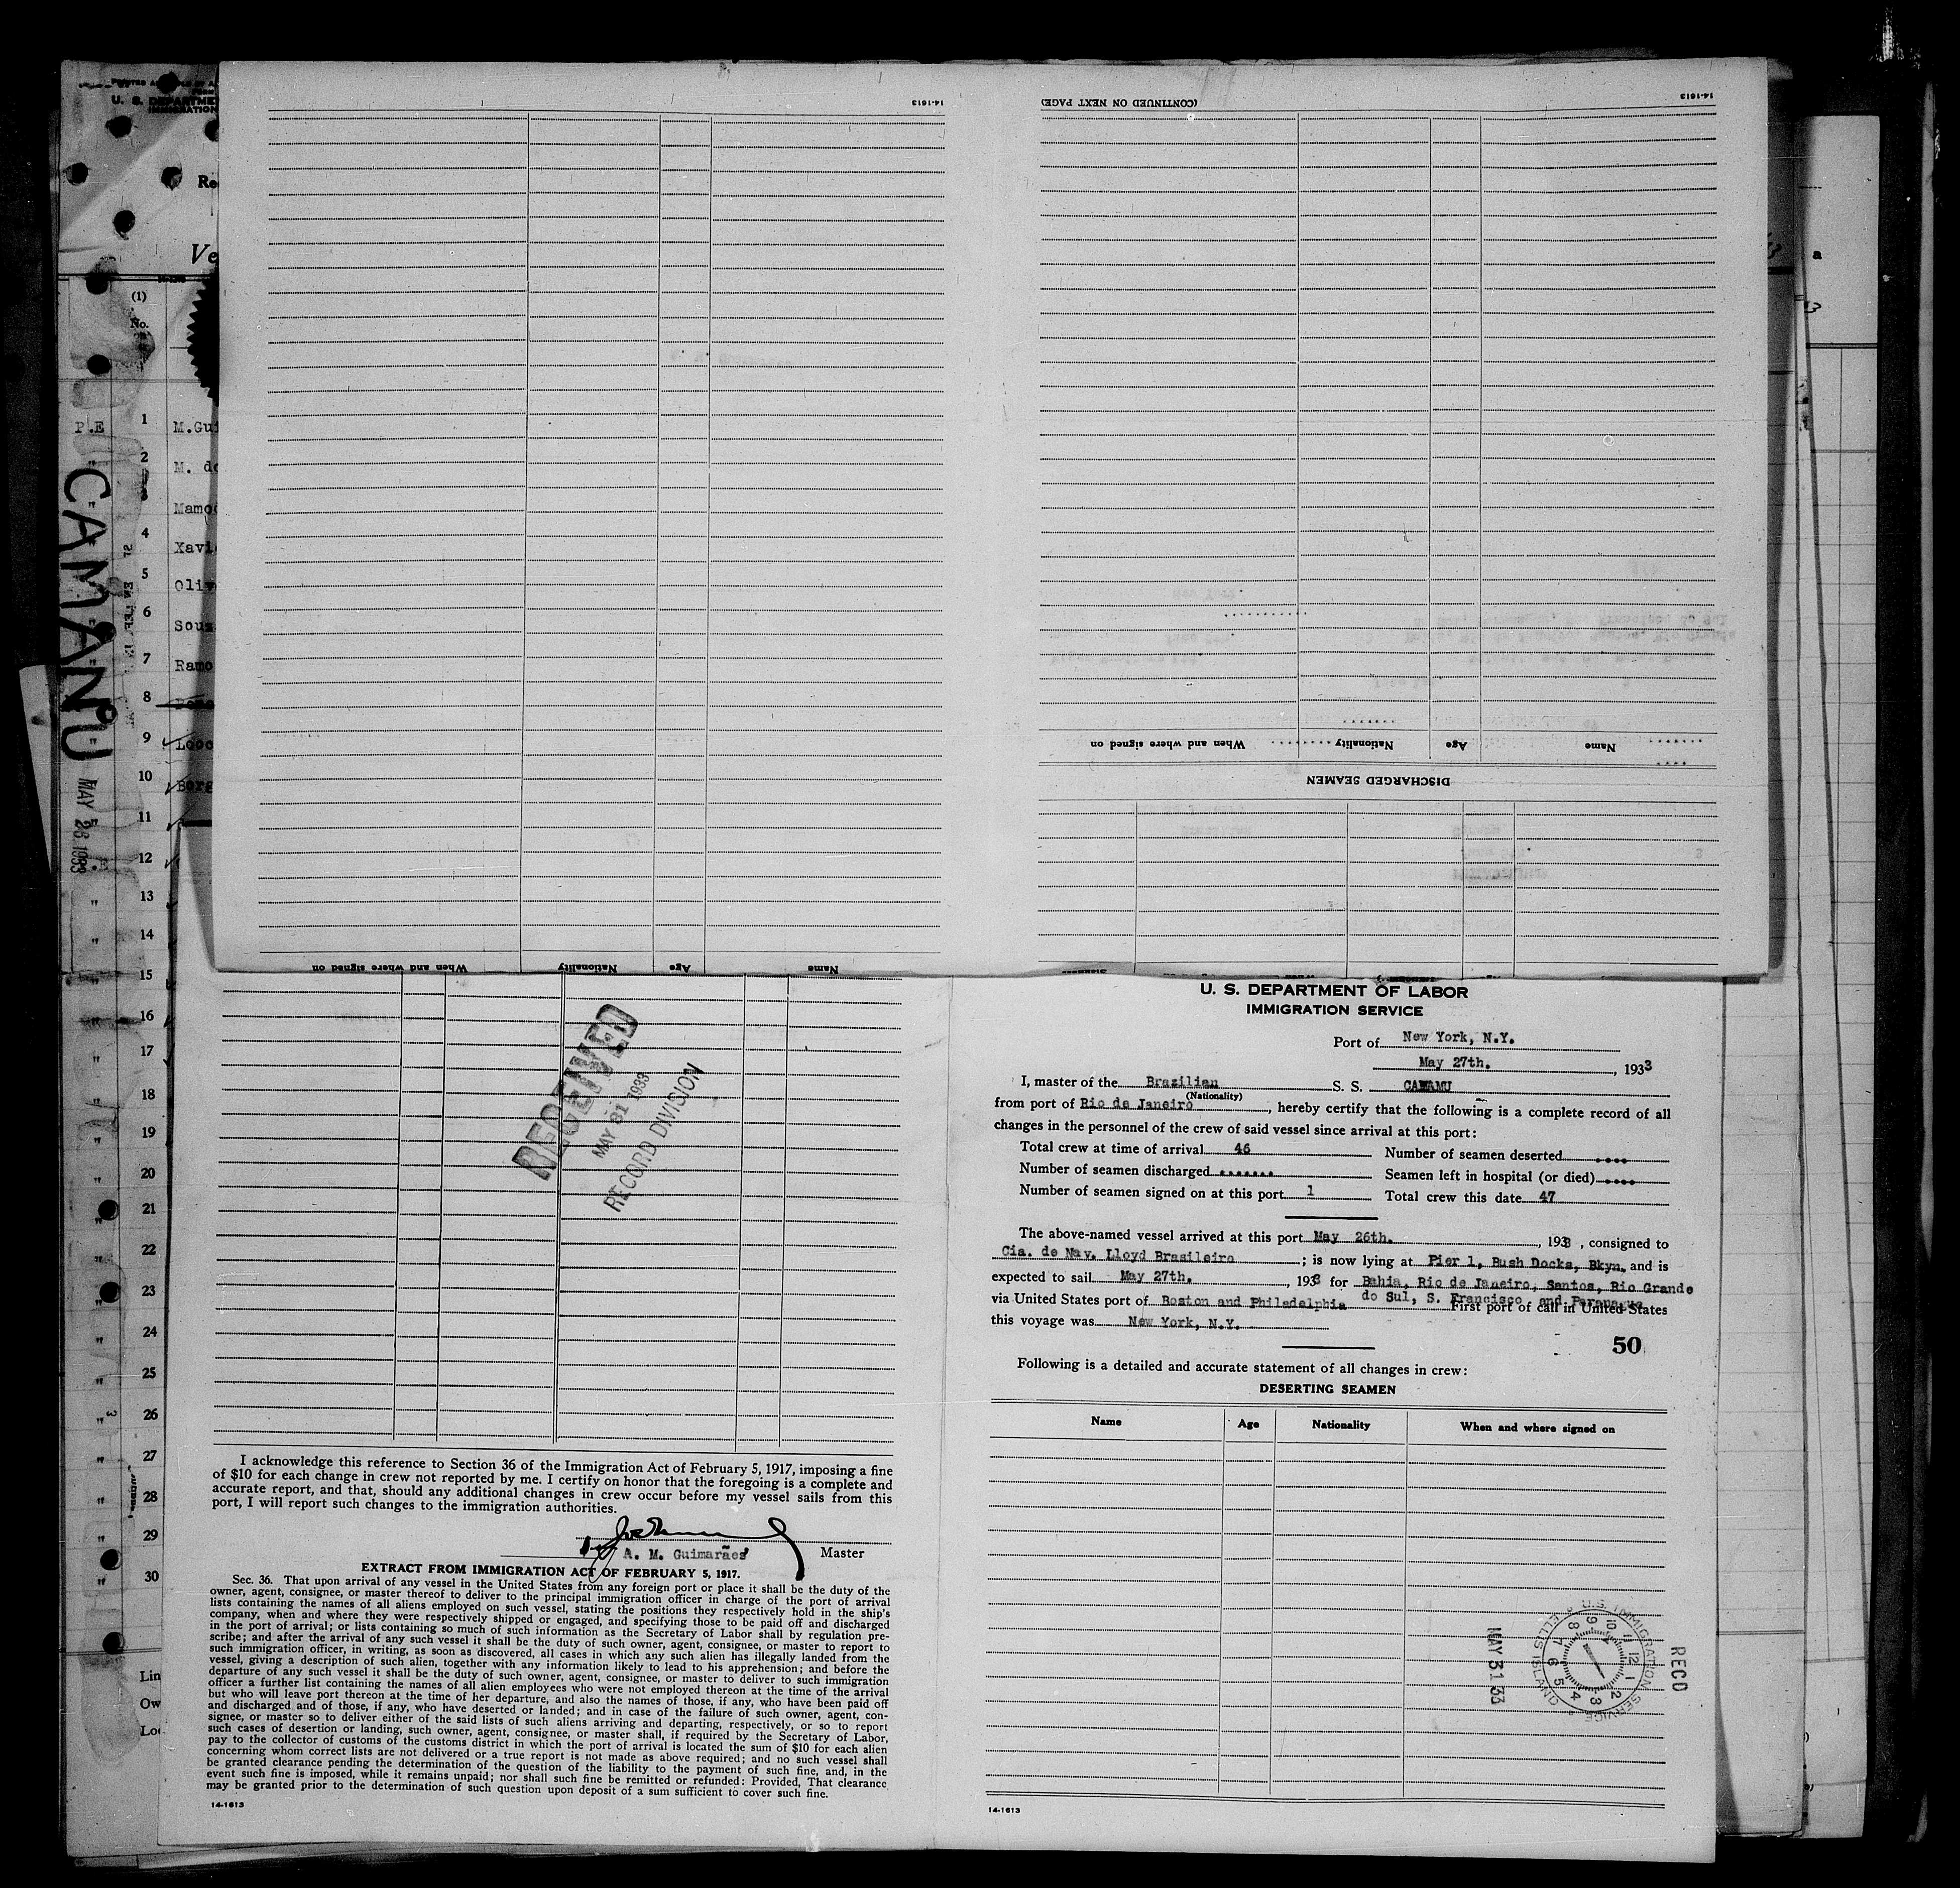 U. S. DEPARTMENT OF LABOR
IMMIGRATION SERVICE
Port of New York, N.Y.
May 27th., 1933
I, master of the Brazilian S. S. CAMAMU
(Nationality)
from port of Rio de Janeiro, hereby certify that the following is a complete record of all
changes in the personnel of the crew of said vessel since arrival at this port:
Total crew at time of arrival 46 Number of seamen deserted ....
Number of seamen discharged ....... Seamen left in hospital (or died) ....
Number of seamen signed on at this port 1 Total crew this date 47
The above-named vessel arrived at this port May 26th., 1933, consigned to
Cia. de Nav. Lloyd Brasileiro; is now lying at Pier 1, Bush Docks, Bkyn. and is
expected to sail May 27th., 1933 for Bahia, Rio de Janeiro, Santos, Rio Grande
do Sul, S. Francisco and Paranagua
via United States port of Boston and Philadelphia First port of call in United States
this voyage was New York, N.Y.
50
Following is a detailed and accurate statement of all changes in crew:
DESERTING SEAMEN
Name Age Nationality When and where signed on
RECD
MAY 31 33
U.S. IMMIGRATION SERVICE ELLIS ISLAND
12 1 2 3 4 5 6 7 8 9 10 11
14-1613
RECEIVED
MAY 31 1933
RECORD DIVISION
I acknowledge this reference to Section 36 of the Immigration Act of February 5, 1917, imposing a fine
of $10 for each change in crew not reported by me. I certify on honor that the foregoing is a complete and
accurate report, and that, should any additional changes in crew occur before my vessel sails from this
port, I will report such changes to the immigration authorities.
A. M. Guimarães Master
EXTRACT FROM IMMIGRATION ACT OF FEBRUARY 5, 1917.
Sec. 36. That upon arrival of any vessel in the United States from any foreign port or place it shall be the duty of the
owner, agent, consignee, or master thereof to deliver to the principal immigration officer in charge of the port of arrival
lists containing the names of all aliens employed on such vessel, stating the positions they respectively hold in the ship's
company, when and where they were respectively shipped or engaged, and specifying those to be paid off and discharged
in the port of arrival; or lists containing so much of such information as the Secretary of Labor shall by regulation pre-
scribe; and after the arrival of any such vessel it shall be the duty of such owner, agent, consignee, or master to report to
such immigration officer, in writing, as soon as discovered, all cases in which any such alien has illegally landed from the
vessel, giving a description of such alien, together with any information likely to lead to his apprehension; and before the
departure of any such vessel it shall be the duty of such owner, agent, consignee, or master to deliver to such immigration
officer a further list containing the names of all alien employees who were not employed thereon at the time of the arrival
but who will leave port thereon at the time of her departure, and also the names of those, if any, who have been paid off
and discharged and of those, if any, who have deserted or landed; and in case of the failure of such owner, agent, con-
signee, or master so to deliver either of the said lists of such aliens arriving and departing, respectively, or so to report
such cases of desertion or landing, such owner, agent, consignee, or master shall, if required by the Secretary of Labor,
pay to the collector of customs of the customs district in which the port of arrival is located the sum of $10 for each alien
concerning whom correct lists are not delivered or a true report is not made as above required; and no such vessel shall
be granted clearance pending the determination of the question of the liability to the payment of such fine, and, in the
event such fine is imposed, while it remains unpaid; nor shall such fine be remitted or refunded: Provided, That clearance
may be granted prior to the determination of such question upon deposit of a sum sufficient to cover such fine.
14-1613
DISCHARGED SEAMEN
Name Age Nationality When and where signed on
(CONTINUED ON NEXT PAGE)
14-1613
Name Age Nationality When and where signed on
14-1613
CAMANU
MAY 26 1933
U. S. DEPARTME
IMMIGRATION
Re
Ve
(1)
No.
P.E 1 M.Gui
2 M. do
3 Mamo
4 Xavi
5 Oliv
6 Sous
7 Ramo
8
9 Lobo
10 Borg
11
12
13
14
15
16
17
18
19
20
21
22
23
24
25
26
27
28
29
30
Lin
Ow
Loc